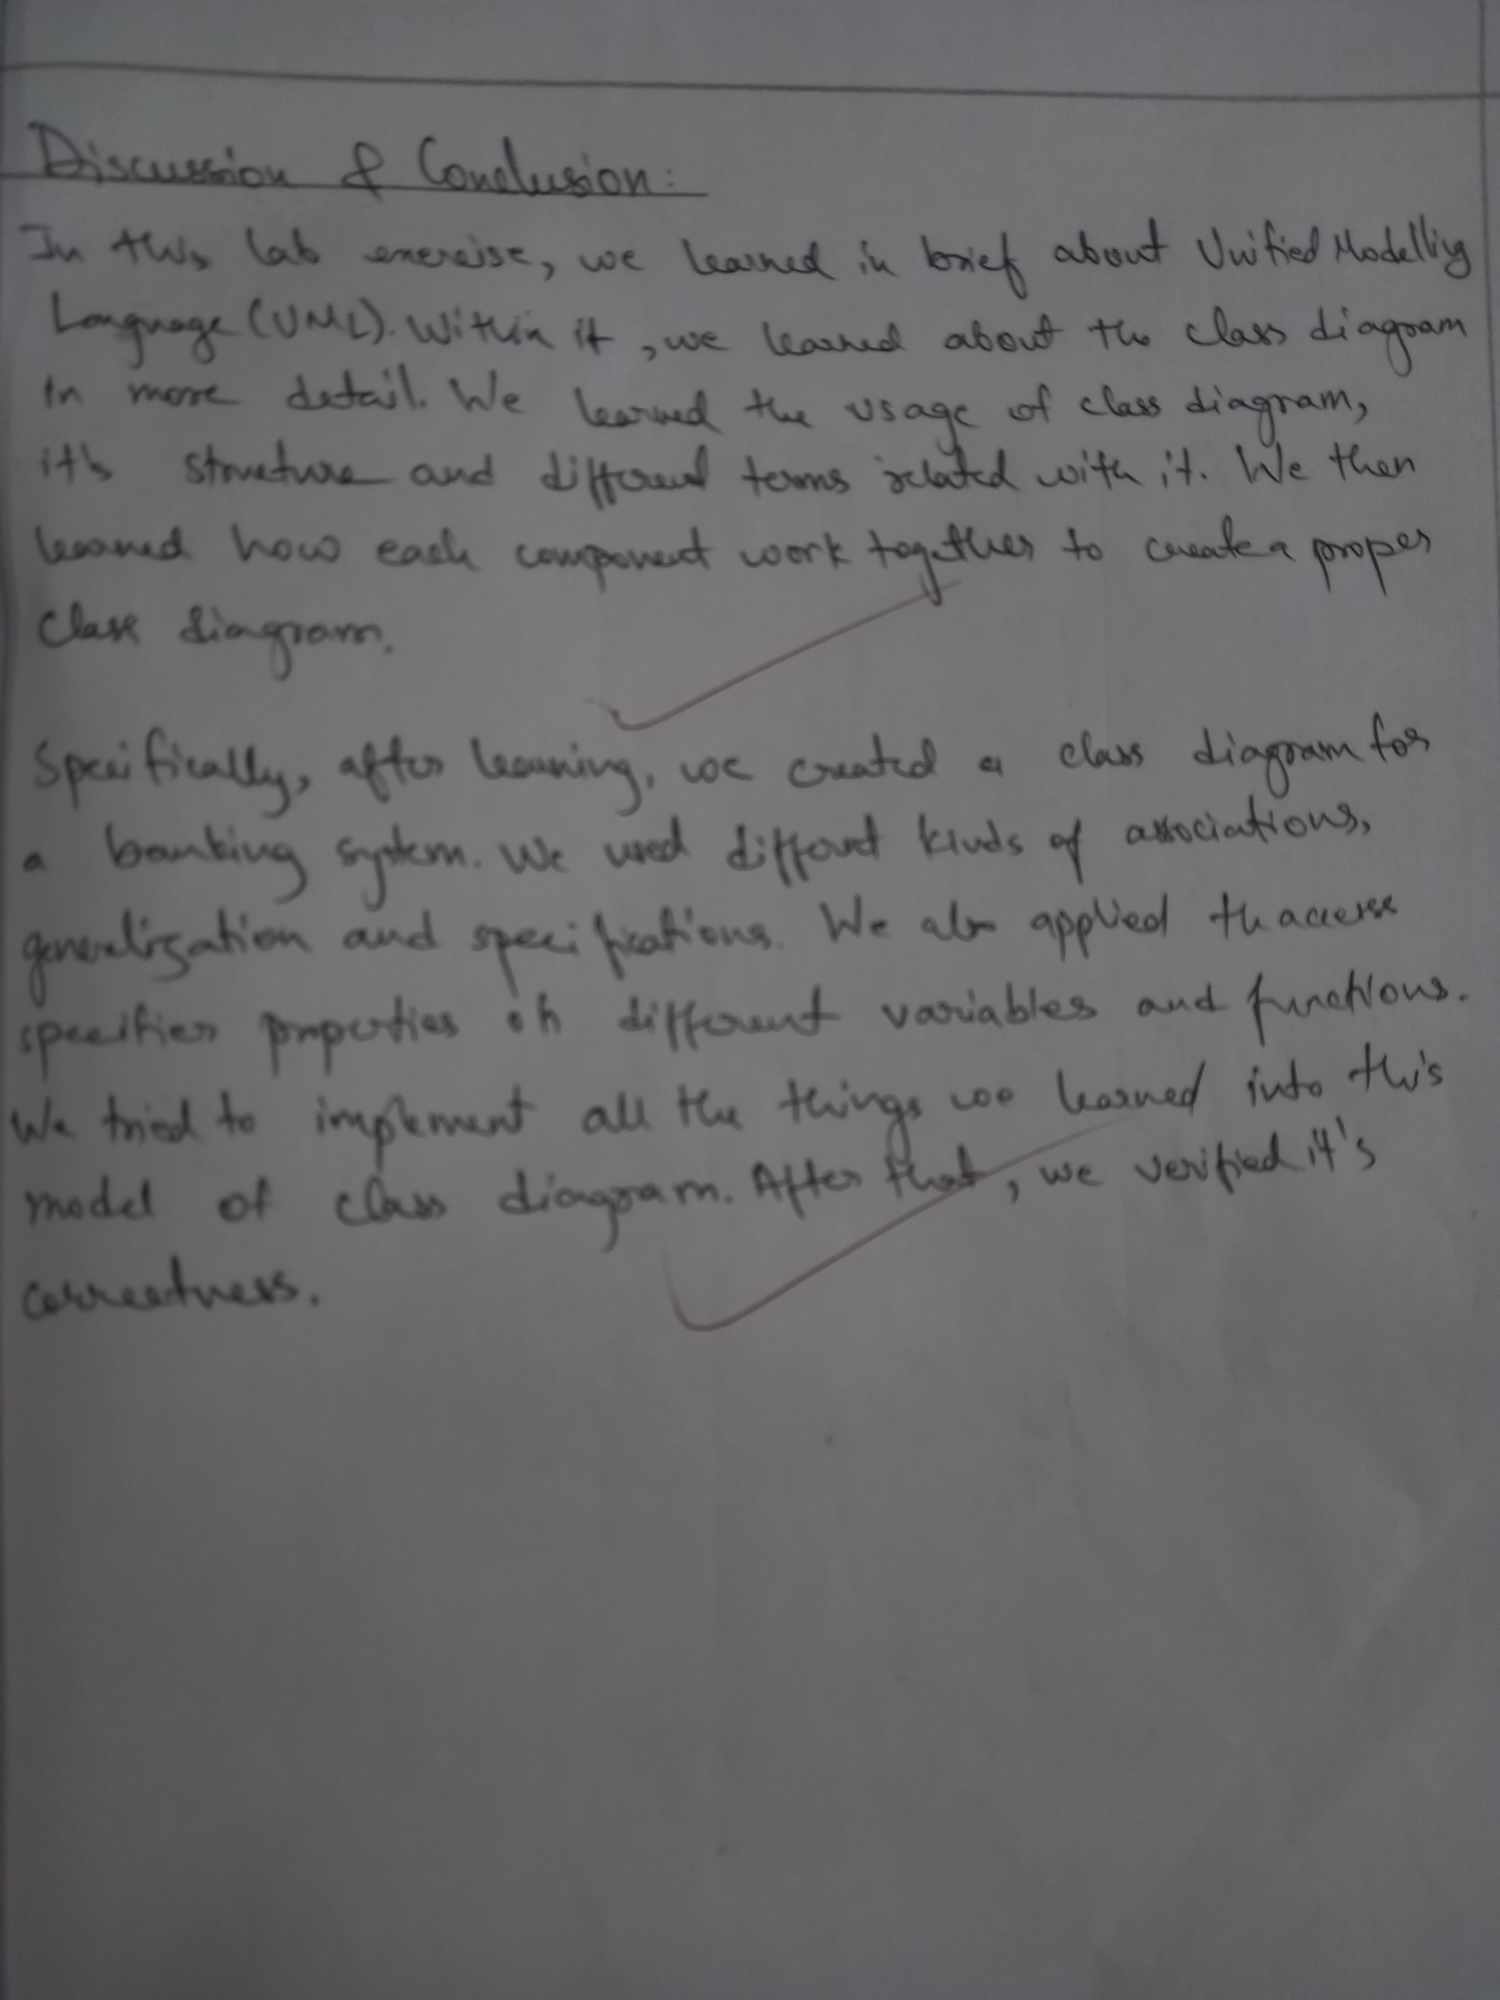 Discussion & Conclusion:
In this lab exercise, we learned in brief about Unified Modelling
Language (UML). Within it, we learned about the class diagram
in more detail. We learned the usage of class diagram,
it's structure and different terms related with it. We then
learned how each component work together to create a proper
class diagram.
Specifically, after learning, we created a class diagram for
a banking system. We used different kinds of associations,
generalization and specifications. We also applied the access
specifier properties on different variables and functions.
We tried to implement all the things we learned into this
model of class diagram. After that, we verified it's
correctness.